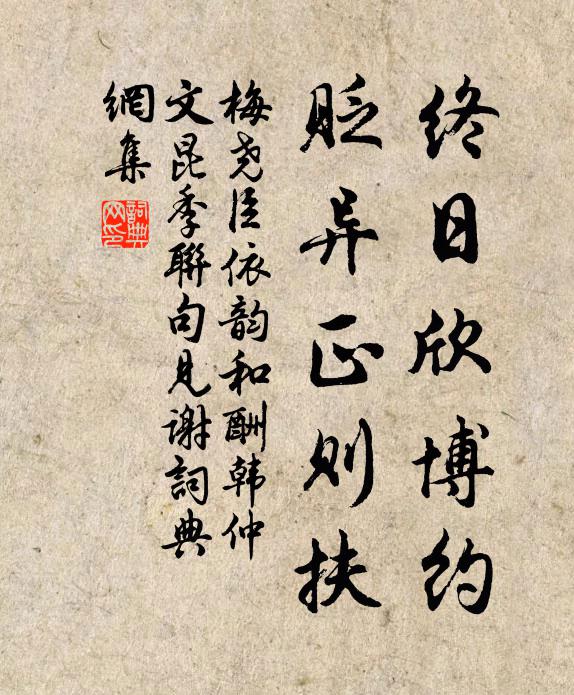 终日欣博约
贬异正则扶
梅尧臣依韵和酬韩仲
文昆季联句见谢词典
网集
词典
网印